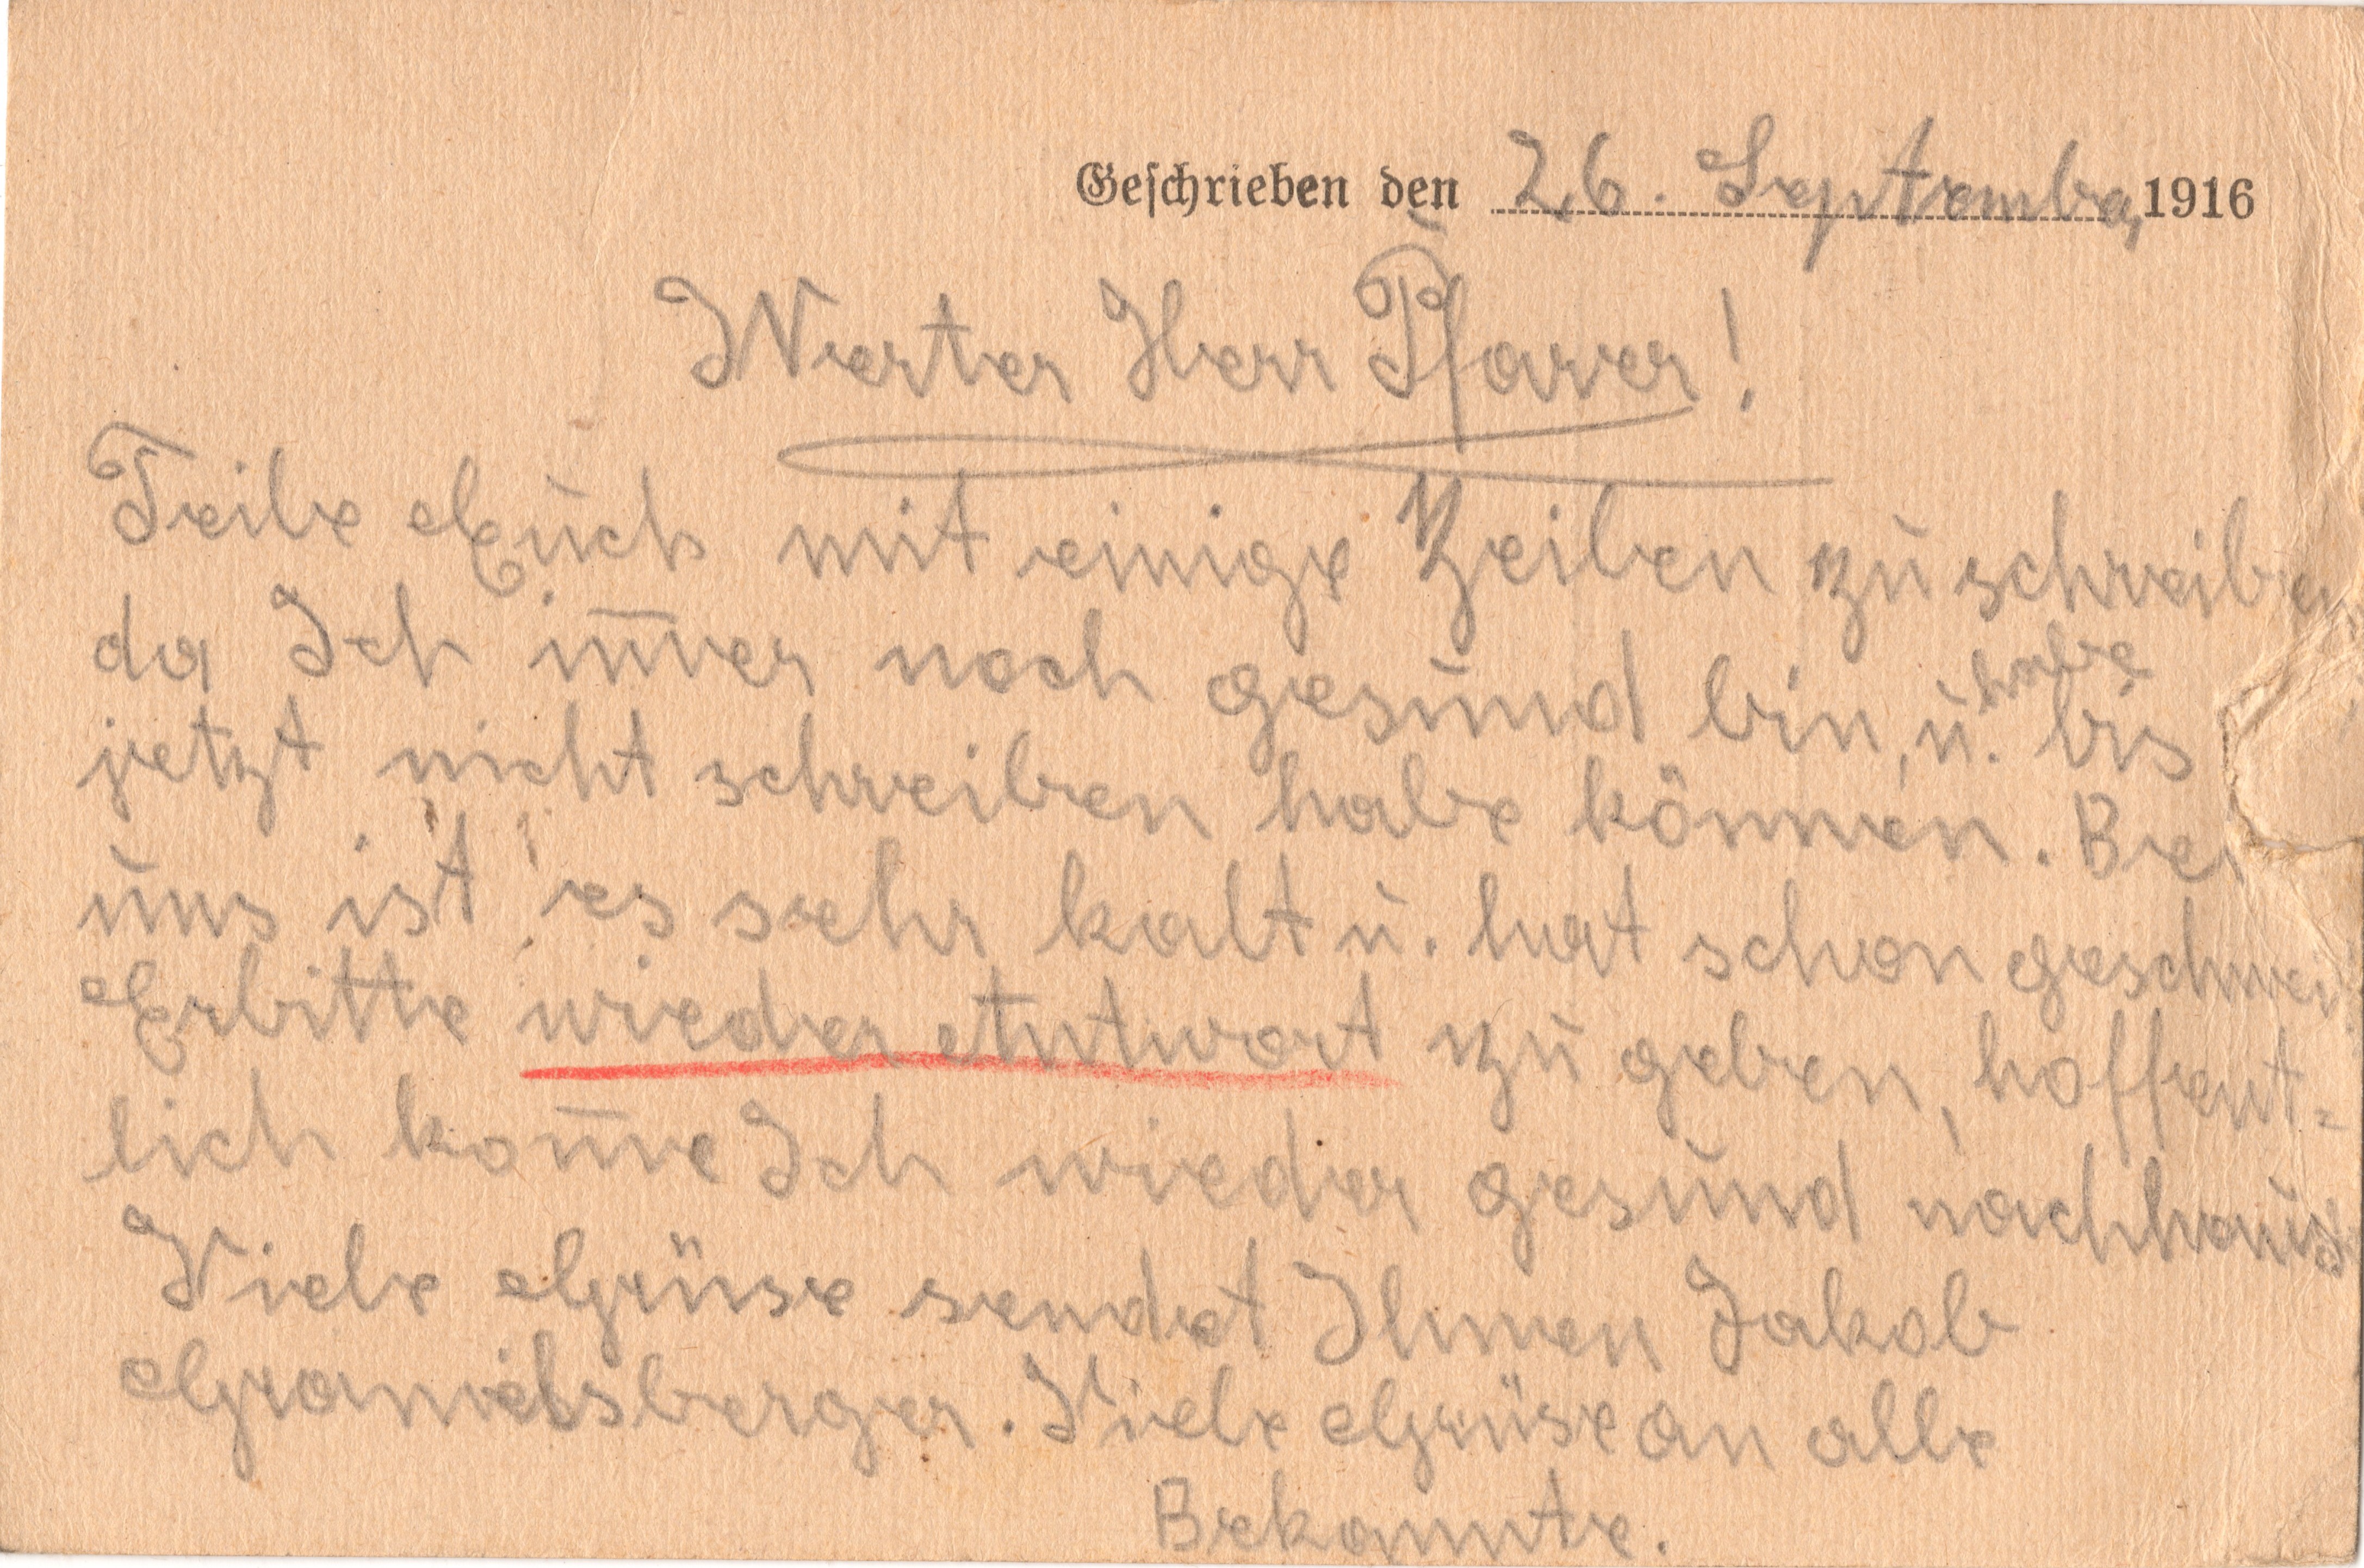 Geschrieben den 26. September 1916
Werter Herr Pfarrer!
Teile Euch mit einige Zeilen zu schreiben
da Ich im̅er noch gesund bin, u. habe bis
jetzt nicht schreiben habe können. Bei
uns ist es sehr kalt u. hat schon geschneit
Erbitte wieder Antwort zu geben, hoffent=
lich kom̅e Ich wieder gesund nachhaus
Viele Grüse sendet Ihnen Jakob
Viele Grüse an alle
Bekannte.